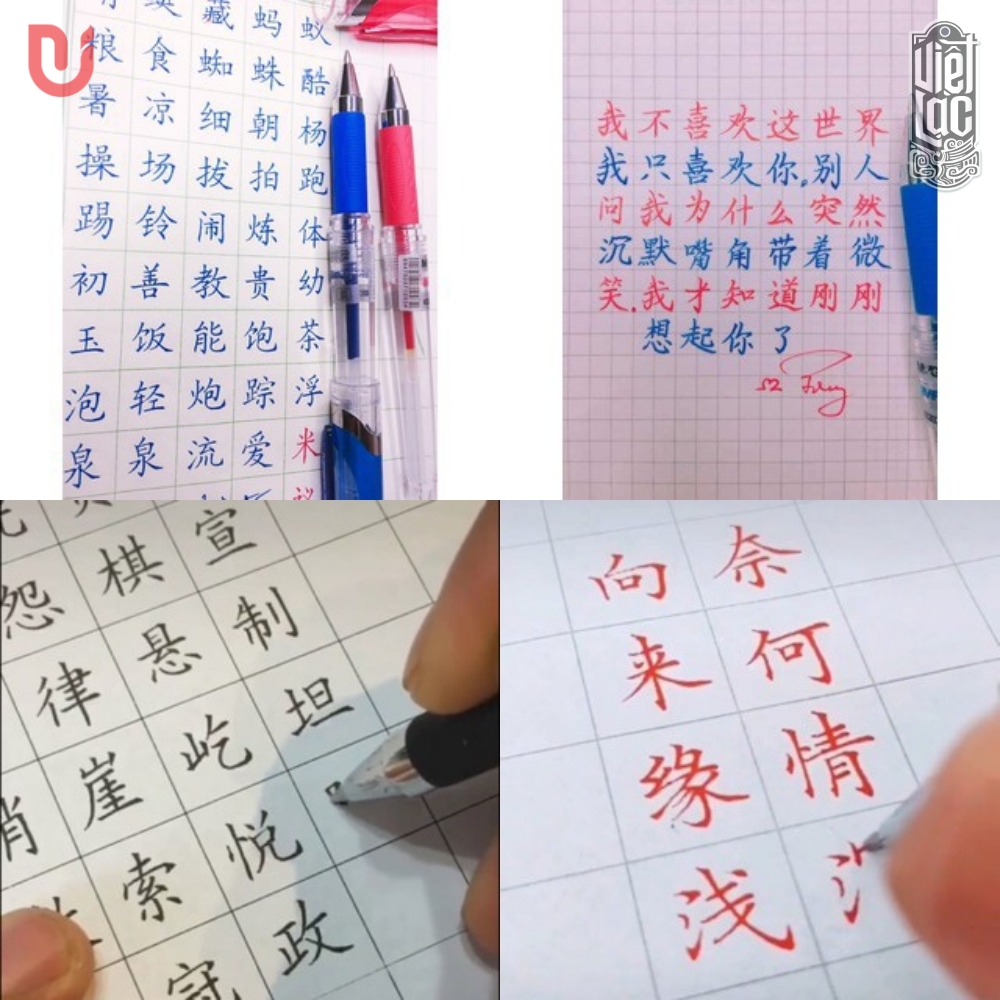 Việt Lạc
藏 蚂 蚁
粮 食 蜘 蛛 酷
暑 凉 细 朝 杨
操 场 拔 拍 跑
踢 铃 闹 炼 体
初 善 教 贵 幼
玉 饭 能 饱 茶
泡 轻 炮 踪 浮
泉 泉 流 爱 米
我不喜欢这世界
我只喜欢你。别人
问我为什么突然
沉默嘴角带着微
笑.我才知道刚刚
想起你了
怨 棋 宣
律 悬 制
崖 屹 坦
索 悦
冠 政
向 奈
来 何
缘 情
浅